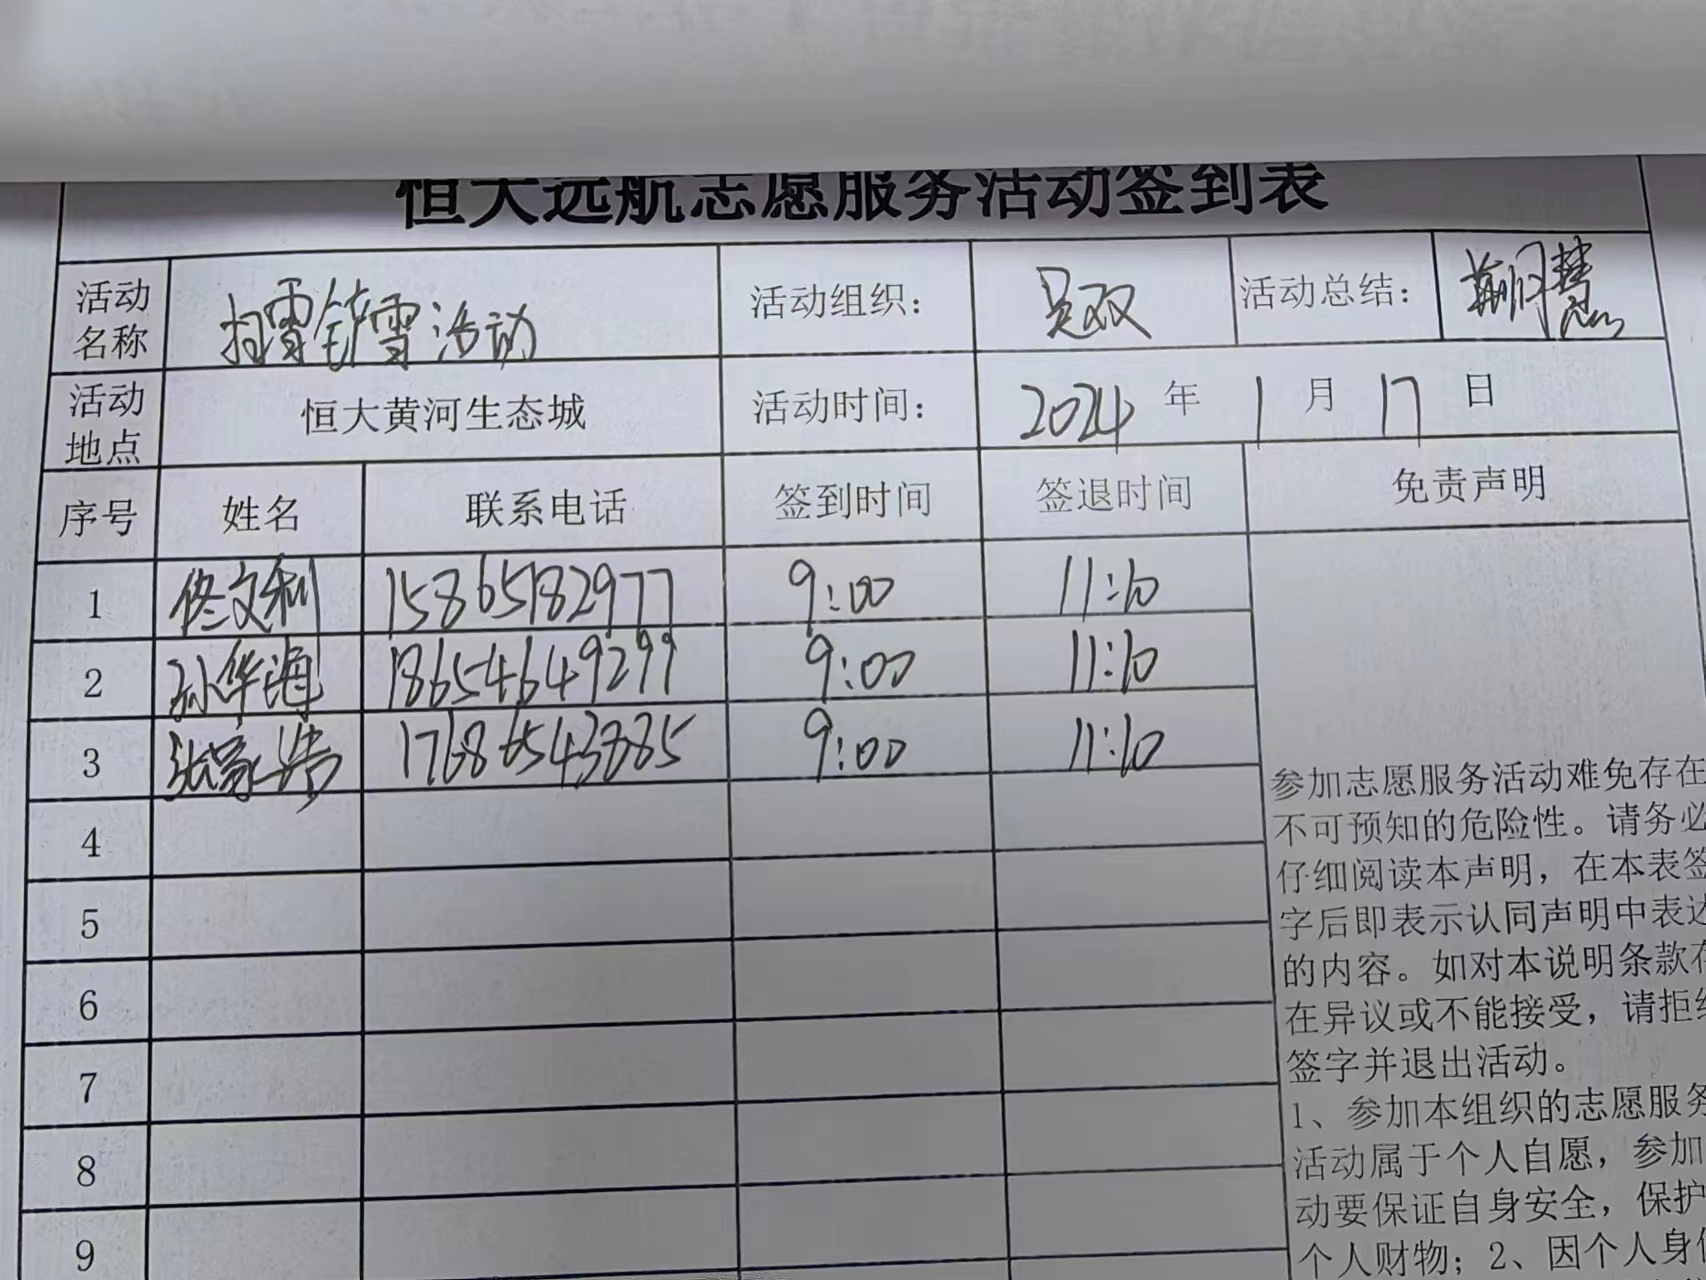 恒大远航志愿服务活动签到表
活动名称 扫雪铲雪活动 活动组织： 吴双 活动总结： 荆慧
活动地点 恒大黄河生态城 活动时间： 2024 年 1 月 17 日
序号 姓名 联系电话 签到时间 签退时间 免责声明
1 佟文利 15865182977 9:00 11:10
2 孙华海 18654649299 9:00 11:10
3 张家浩 17686543885 9:00 11:10
4
5
6
7
8
9
参加志愿服务活动难免存在
不可预知的危险性。请务必
仔细阅读本声明，在本表签
字后即表示认同声明中表达
的内容。如对本说明条款存
在异议或不能接受，请拒绝
签字并退出活动。
1、参加本组织的志愿服务
活动属于个人自愿，参加
动要保证自身安全，保护
个人财物；2、因个人身